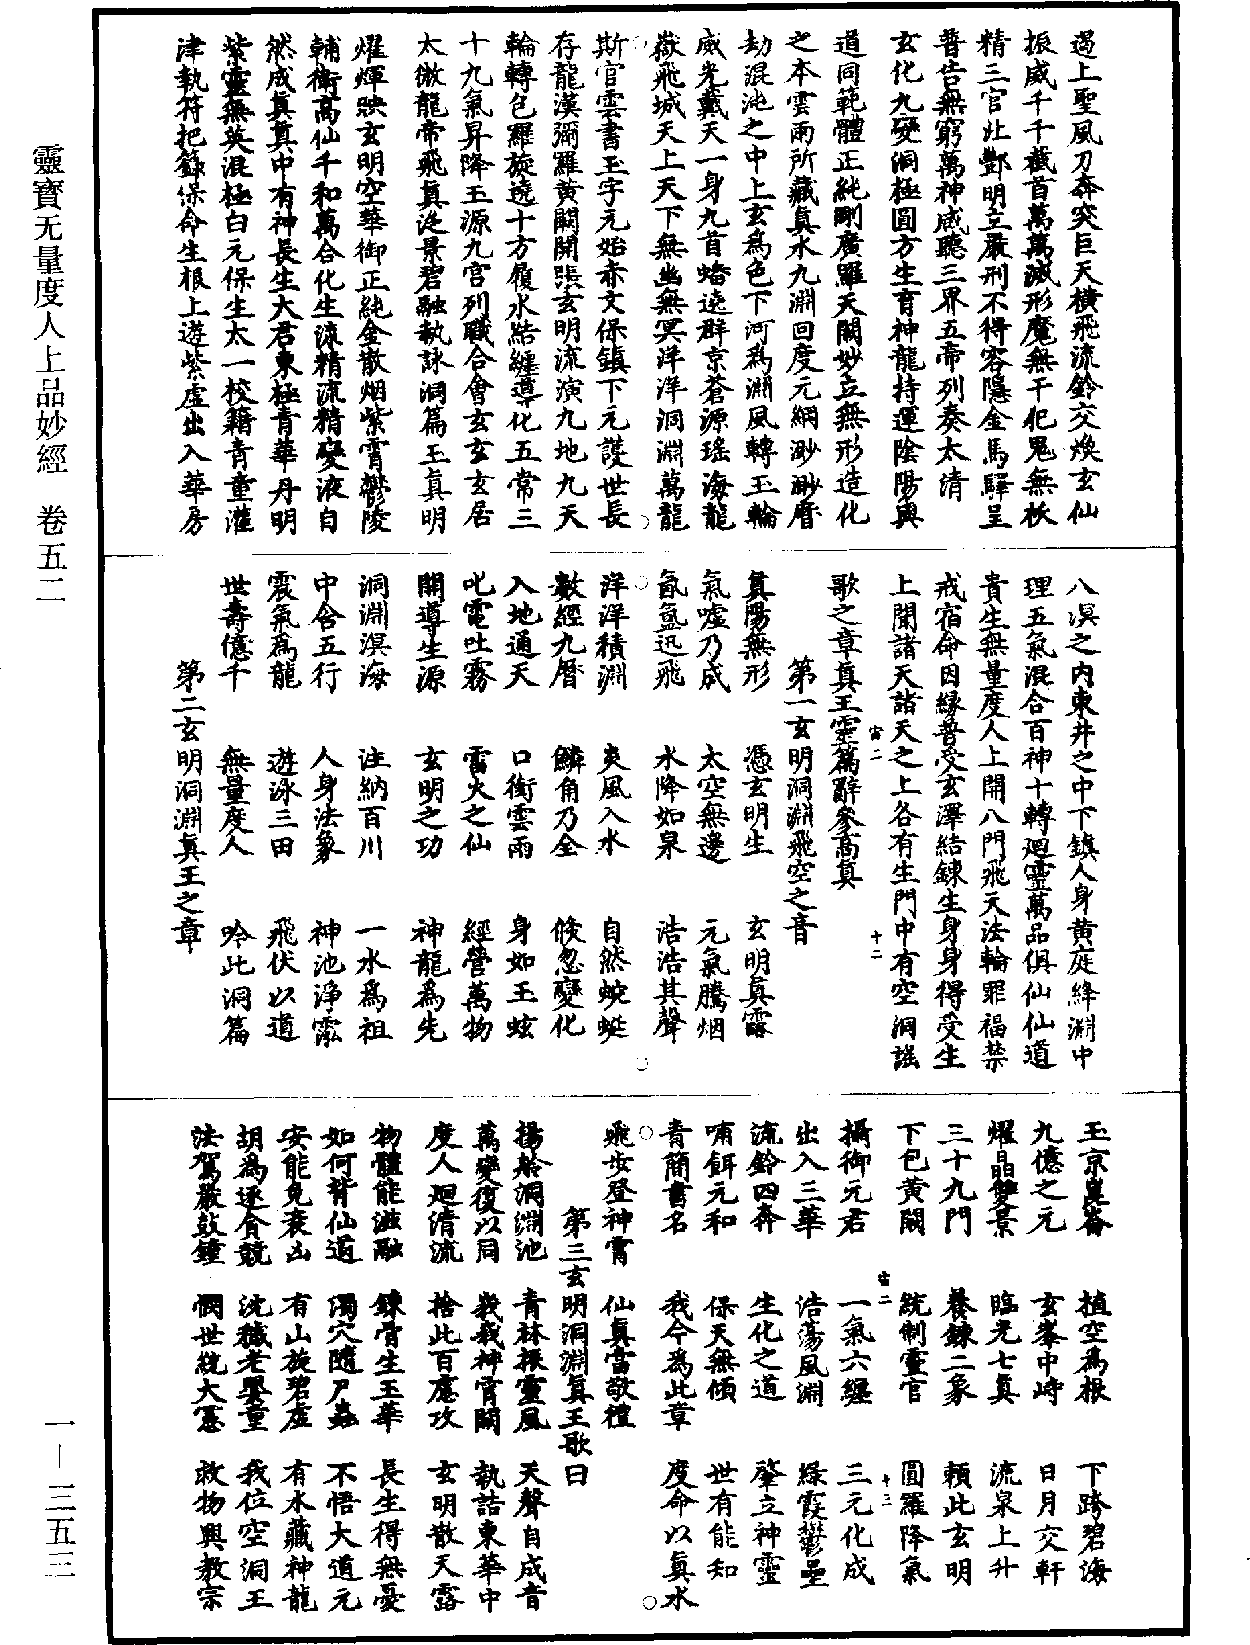 靈寶无量度人上品妙經　卷五二
一—三五三
遏上聖風刀奔突巨天橫飛流鈴交煥玄仙
振威千千截首萬萬滅形魔無干犯鬼無妖
精三官北酆明立嚴刑不得容隱金馬驛呈
普告無窮萬神咸聽三界五帝列奏太清
玄化九變洞極圓方生育神龍持運陰陽與
道同範體正純剛廣羅天關妙立無形造化
之本雲雨所藏真水九淵回度元綱渺渺曆
劫混沌之中上玄為色下河為淵風轉玉輪
威光戴天一身九首蟠遶群京蒼源瑤海龍
嶽飛城天上天下無幽無冥洋洋洞淵萬龍
斯官雲書玉字元始赤文保鎮下元護世長
存龍漢彌羅黃闕開張玄明流演九地九天
輪轉包羅旋遶十方履水結纏導化五常三
十九氣昇降玉源九宮列職合會玄玄玄居
太微龍帝飛真泛景碧融執詠洞篇玉真明
燿輝映玄明空華御正純金散烟紫霄鬱陵
輔衛高仙千和萬合化生流精流精變液自
然成真真中有神長生大君東極青華丹明
紫靈無英混極白元保生太一校籍青童灌
津執符把籙保命生根上遊紫虛出入華房
八溟之內東井之中下鎮人身黃庭絳淵中
理五氣混合百神十轉迴靈萬品俱仙仙道
貴生無量度人上開八門飛天法輪罪福禁
戒宿命因緣普受玄澤結鍊生身身得受生
上聞諸天諸天之上各有生門中有空洞謡
宙二　十二
歌之章真王靈篇辭參高真
第一玄明洞淵飛空之音
真陽無形　憑玄明生　玄明真靈
氣噓乃成　太空無邊　元氣騰烟
氤氳迅飛　水降如泉　浩浩其聲
洋洋積淵　炎風入水　自然蜿蜒
數經九曆　鱗角乃全　倏忽變化
入地通天　口銜雲雨　身如玉蛟
叱電吐霧　雷火之仙　經營萬物
開導生源　玄明之功　神龍為先
洞淵溟海　注納百川　一水為祖
中含五行　人身法象　神池淨霐
震氣為龍　遊泳三田　飛伏以道
世壽億千　無量度人　吟此洞篇
第二玄明洞淵真王之章
玉京崑崙　植空為根　下跨碧海
九億之元　玄峯中峙　日月交軒
燿晶雙景　臨光七真　流泉上升
三十九門　養鍊二象　賴此玄明
下包黃闕　統制靈官　圓羅降氣
宙二　十三
攝御元君　一氣六纏　三元化成
出入三華　浩蕩風淵　綠霞鬱壘
流鈴四奔　生化之道　肇立神靈
哺餌元和　保天無傾　世有能知
青簡書名　我今為此章　度命以真水
飛步登神霄　仙真當敬禮
第三玄明洞淵真王歌曰
揚舲洞淵池　青林振靈風　天聲自成音
萬變復以同　峩峩神霄闕　執誥東華中
度人迴清流　捨此百慮攻　玄明散天露
物體能滋融　鍊骨生玉華　長生得無憂
如何背仙道　濁穴隨尸蟲　不悟大道元
安能免衰凶　有山旋碧虛　有水藏神龍
胡為逐貪競　沈穢老嬰童　我位空洞王
法駕嚴鼓鐘　憫世統大憲　救物興教宗